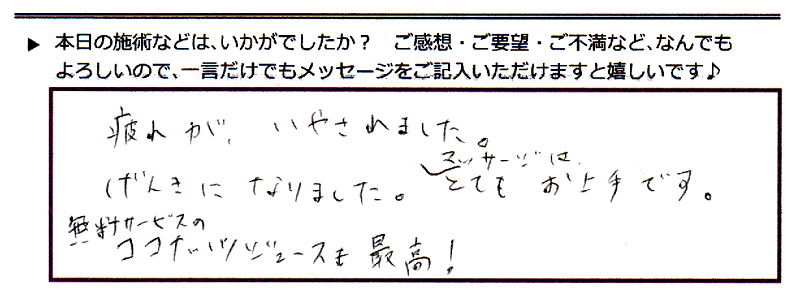 ▶ 本日の施術などは、いかがでしたか？　ご感想・ご要望・ご不満など、なんでも
よろしいので、一言だけでもメッセージをご記入いただけますと嬉しいです♪
疲れが、いやされました。
げんきになりました。マッサージはとてもお上手です。
無料サービスの
ココナッツジュースも最高！